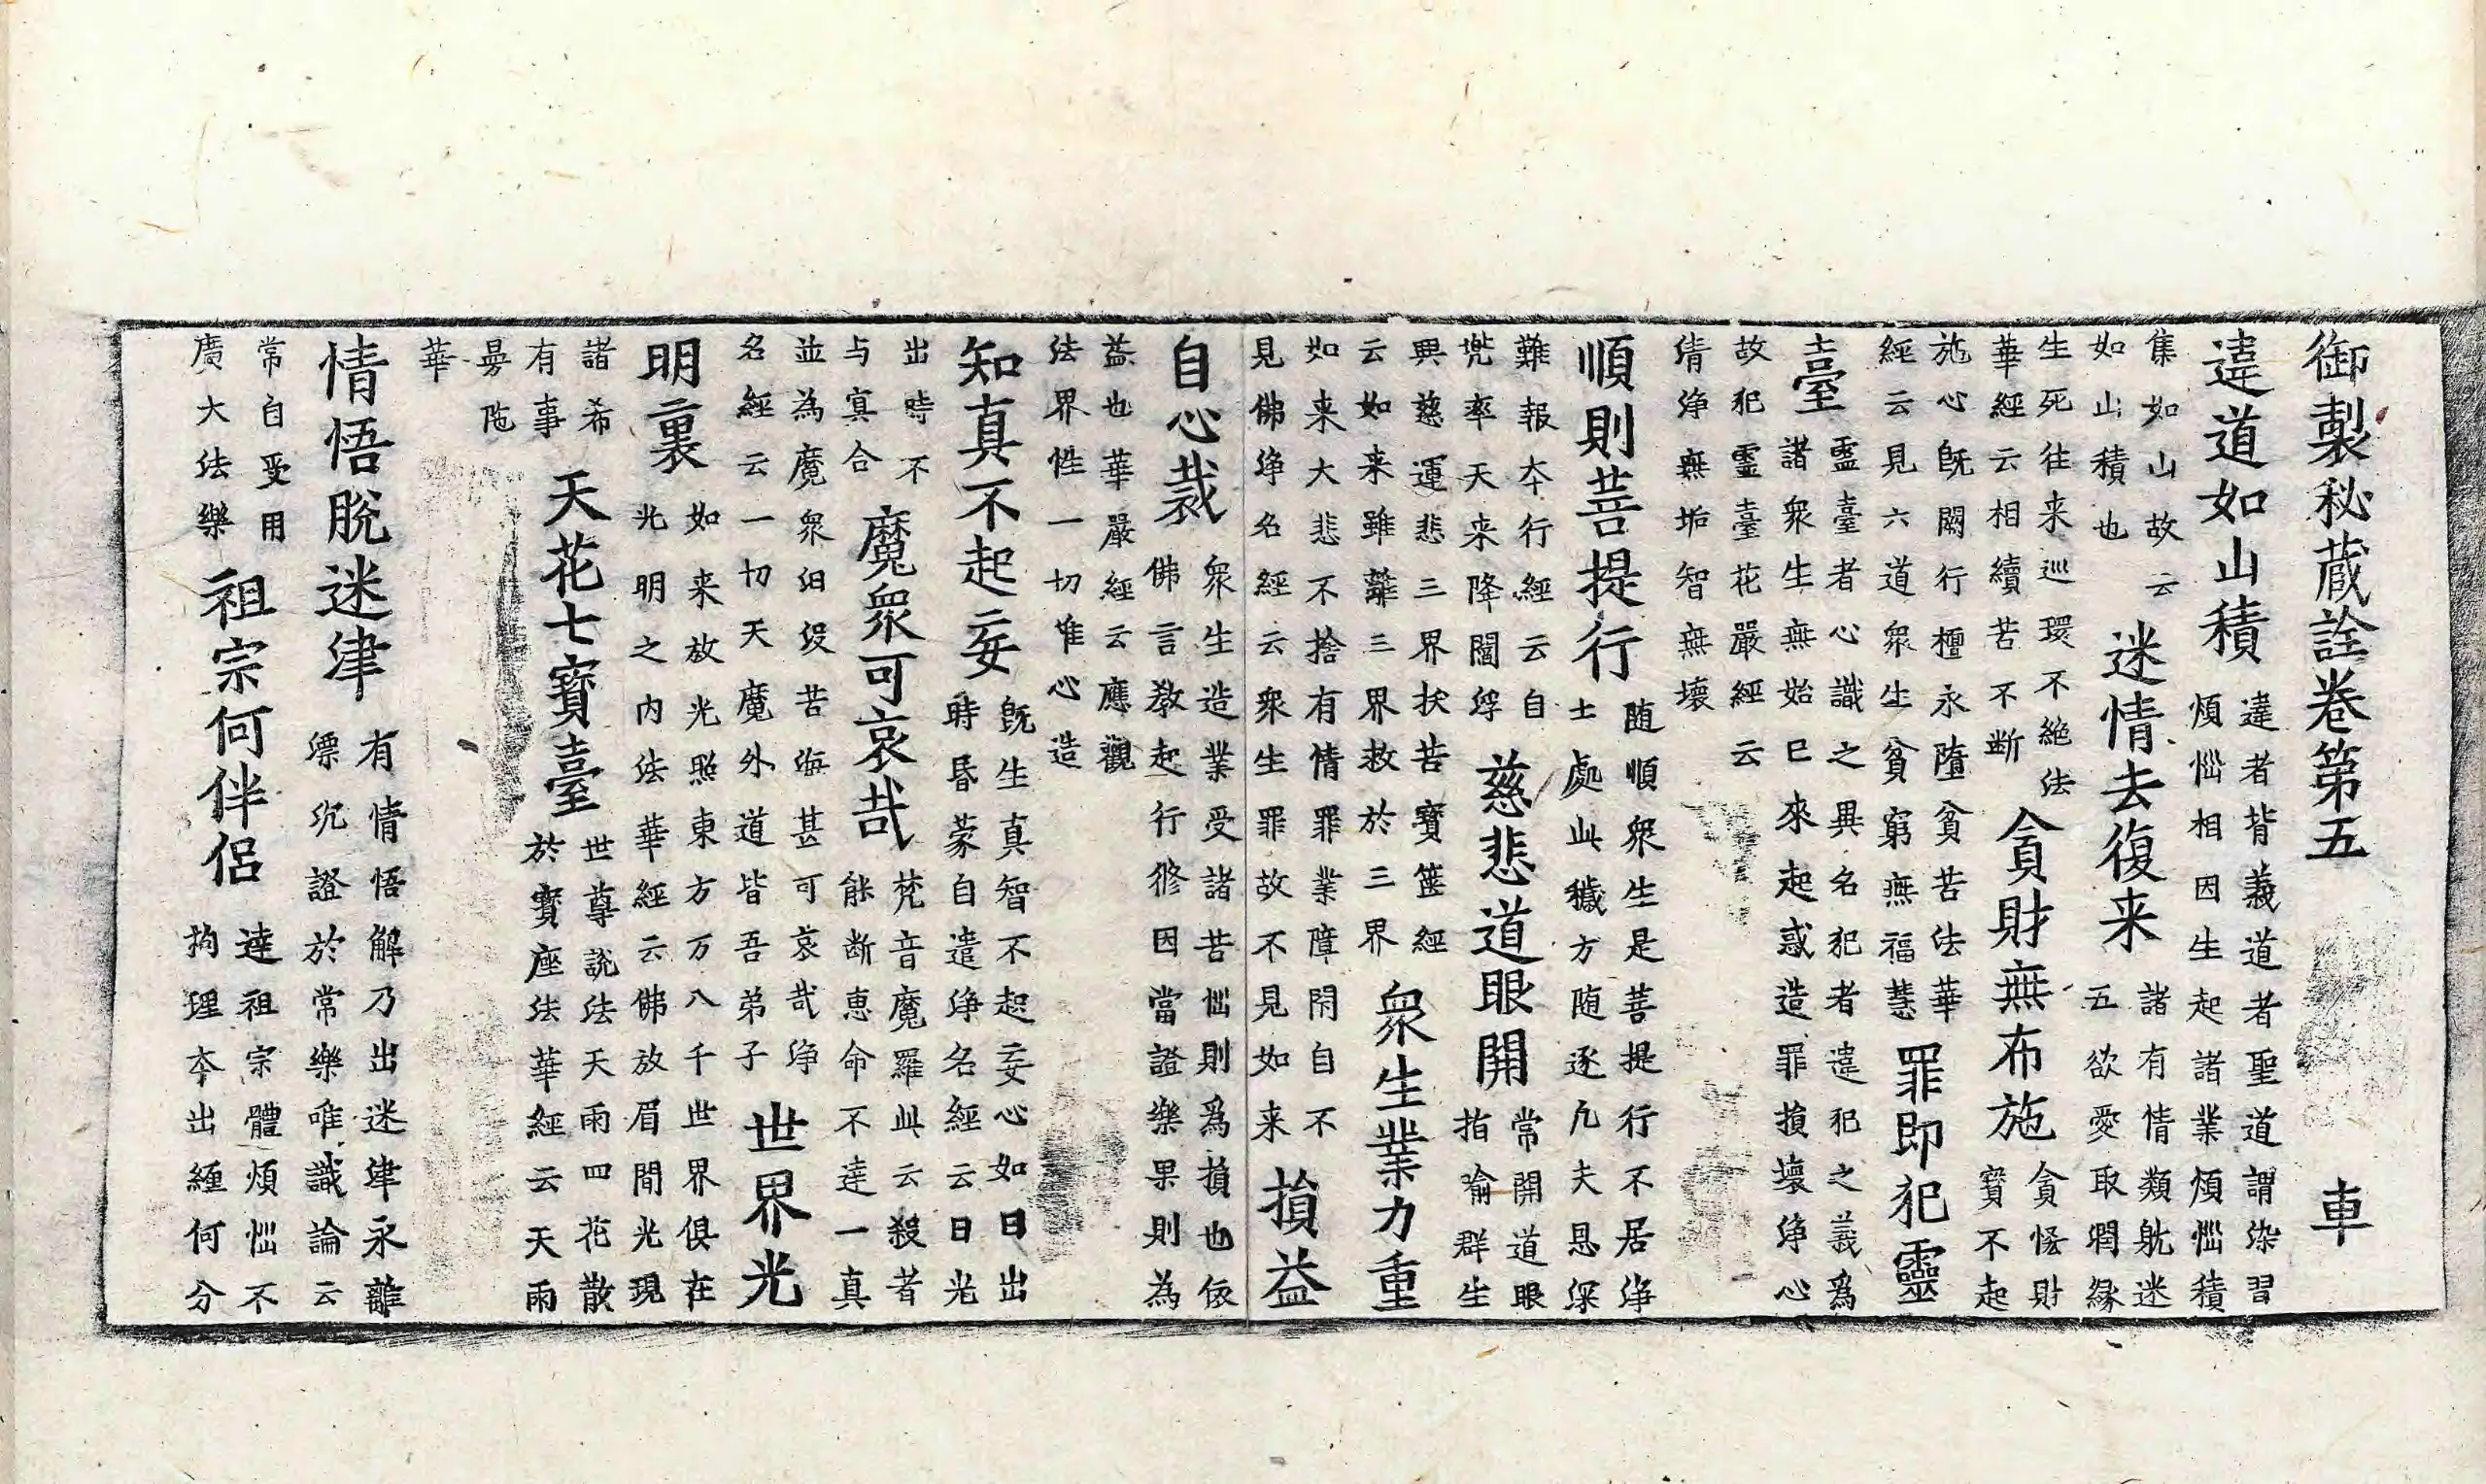 御製秘蔵詮卷第五 車
違道如山積
違者背義道者聖道謂染習
煩惱相因生起諸業煩惱積
集如山故云
如山積也
迷情去復来
諸有情類躭迷
五欲愛取潤縁
生死往来巡環不絶法
華經云相續苦不断
貪財無布施
貪慳財
寳不起
施心既闕行檀永墮貧苦法華
經云見六道衆生貧窮無福慧
罪即犯靈
臺
靈臺者心識之異名犯者違犯之義爲
諸衆生無始已來起惑造罪損壞淨心
故犯靈臺花嚴經云
清淨無垢智無壞
順則菩提行
随順衆生是菩提行不居淨
士處此穢方随逐凢夫恩深
難報夲行經云自
兠率天来降閻浮
慈悲道眼開
常開道眼
指喻群生
興慈運悲三界抜苦寳篋經
云如来雖離三界救於三界
衆生業力重
如来大悲不捨有情罪業障閇自不
見佛淨名經云衆生罪故不見如来
損益
自心裁
衆生造業受諸苦惱則爲損也依
佛言教起行修因當證樂果則為
益也華嚴經云應觀
法界性一切唯心造
知真不起妄
既生真智不起妄心如日出
時昏蒙自遣淨名經云日光
出時不
与冥合
魔衆可哀哉
梵音魔羅此云殺者
能断惠命不達一真
並為魔衆汩没苦海甚可哀哉淨
名經云一切天魔外道皆吾弟子
世界光
明裏
如来放光照東方万八千世界俱在
光明之内法華經云佛放眉間光現
諸希
有事
天花七寳臺
世尊説法天雨四花散
於寳座法華經云天雨
曼陁
華
情悟脱迷津
有情悟解乃出迷津永離
漂沉證於常樂唯識論云
常自受用
廣大法樂
祖宗何伴侣
達祖宗體煩惱不
拘理夲出纏何分